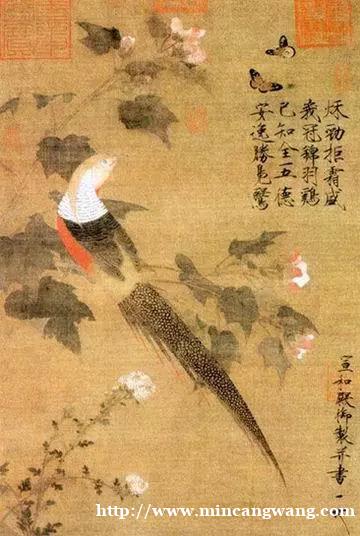 秋勁拒霜盛
峩冠錦羽鷄
已知全五德
安逸勝鳧鷖
宣和殿御製并書
http://www.mincangwang.com